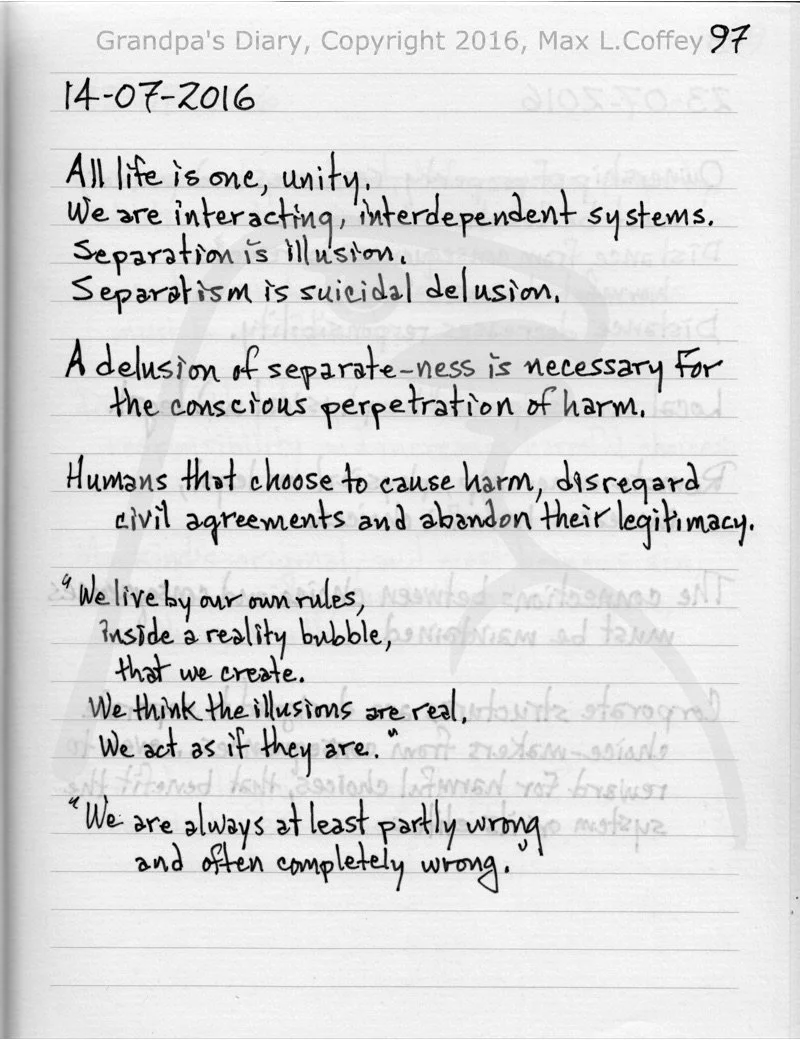 Grandpa's Diary, Copyright 2016, Max L.Coffey 97
14-07-2016
All life is one, unity.
We are interacting, interdependent systems.
Separation is illusion.
Separatism is suicidal delusion.
A delusion of separate-ness is necessary for
the conscious perpetration of harm.
Humans that choose to cause harm, disregard
civil agreements and abandon their legitimacy.
"We live by our own rules,
inside a reality bubble,
that we create.
We think the illusions are real.
We act as if they are."
"We are always at least partly wrong
and often completely wrong."